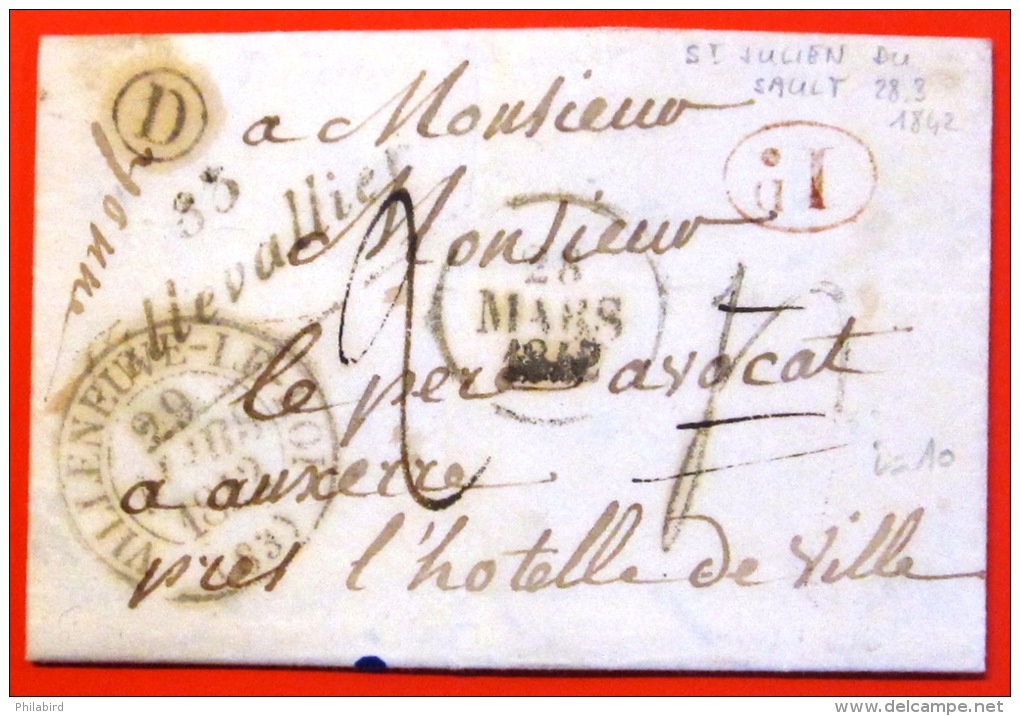 St JULIEN DU
SAULT 28.3
1842
D
a Monsieur
1D
83
Villevallier
Monsieur
28
MARS
1842
2
le pere avocat
VILLENEUVE-LE-ROI
29
MARS
1842
(83)
i=10
a auxerre
près l'hotelle de ville
Philabird
www.delcampe.net